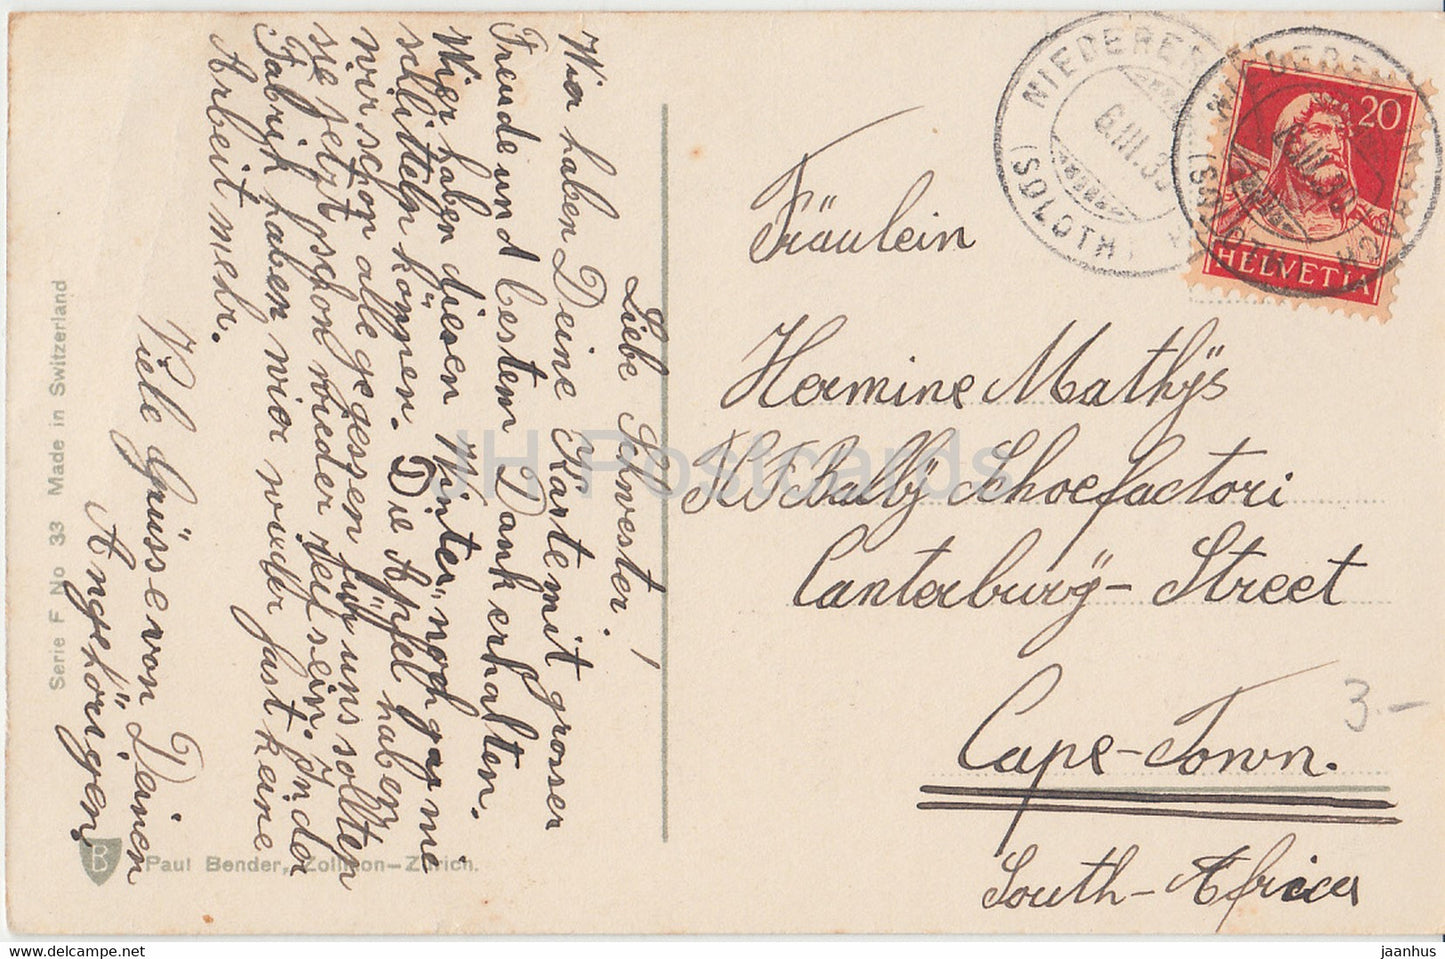 Liebe Schwester!
Wia haben Deine Karte mit grosser
Freude und bestem Dank erhalten.
Wier haben diesen Winter noch gar nie
schlitteln können. Die Äpfel haben
wir schon alle gegessen für uns sollten
sie jetzt schon wieder reif sein. In der
Fabrik haben wior wieder fast keine
Arbeit mehr.
Viele Grüsse von Deinen
Angehörigen.
Serie F No 33 Made in Switzerland
B
Paul Bender, Zollikon-Zürich.
NIEDERER
(SOLOTH
6.III.33
20
HELVETIA
Fräulein
Hermine Mathÿs
Ballÿ Schoefactori
Canterburÿ-Street
Cape-Town.
South-Africa
3.-
JH Postcards
jaanhus